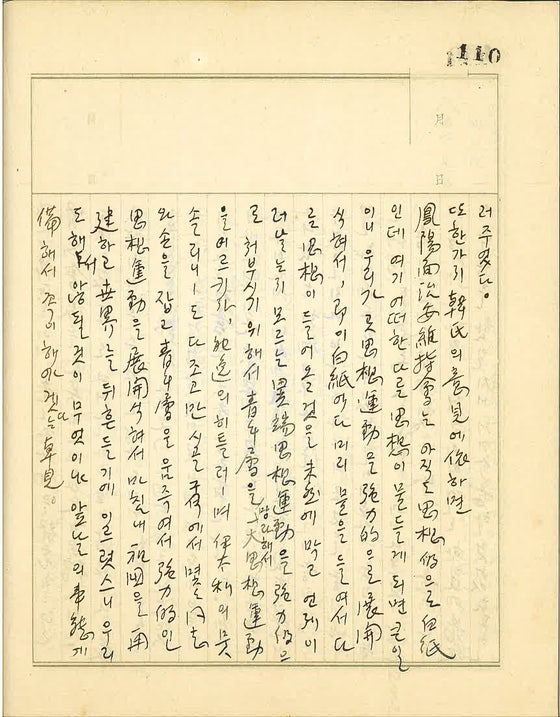 110
月
日
러주엇다。
또한가지 韓氏의 意見에 依하면
鳳陽面治安維持會는 아직도 思想的으로 白紙
인데 여기 어떠한 다른 思想이 물들게 되면 큰일
이니 우리가 곳 思想運動을 强力的으로 展開
식혀서, 即 이 白紙에다 미리 물을 드려서 다
른 思想이 들어오는 것을 未然에 막고 언제 이
러날는지 모르는 異端思想運動을 强力的으
로 처부시기 위해서 靑年層을 망라해서 大思想運動
을 이르키자, 獨逸의 히틀러ㅣ며 伊太利의 뭇
솔리니ㅣ도 다 조고만 싀골 구석에서 몇몇 同志
와 손을 잡고 靑年層을 움즉여서 强力的인
思想運動을 展開식혀서 마침내 祖國을 再
建하고 世界를 뒤흔들기에 이르럿스니 우리
도 해서 않될 것이 무엇이냐 앞날의 事態에
備해서 꼭 이 해야 겟다는 卓見。